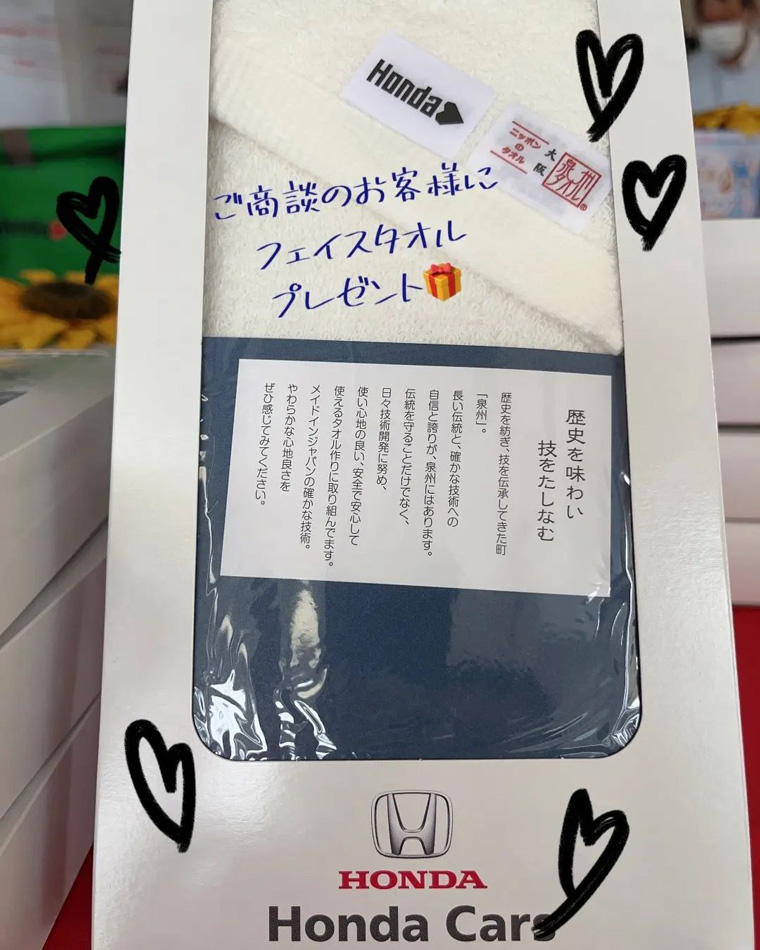 Honda
ニッポン
の
タオル
大阪
泉州
タオル
ご商談のお客様に
フェイスタオル
プレゼント🎁
歴史を味わい
技をたしなむ
歴史を紡ぎ、技を伝承してきた町
「泉州」。
長い伝統と、確かな技術への
自信と誇りが、泉州にはあります。
伝統を守ることだけでなく、
日々技術開発に努め、
使い心地の良い、安全で安心して
使えるタオル作りに取り組んでます。
メイドインジャパンの確かな技術。
やわらかな心地良さを
ぜひ感じてみてください。
HONDA
Honda Cars